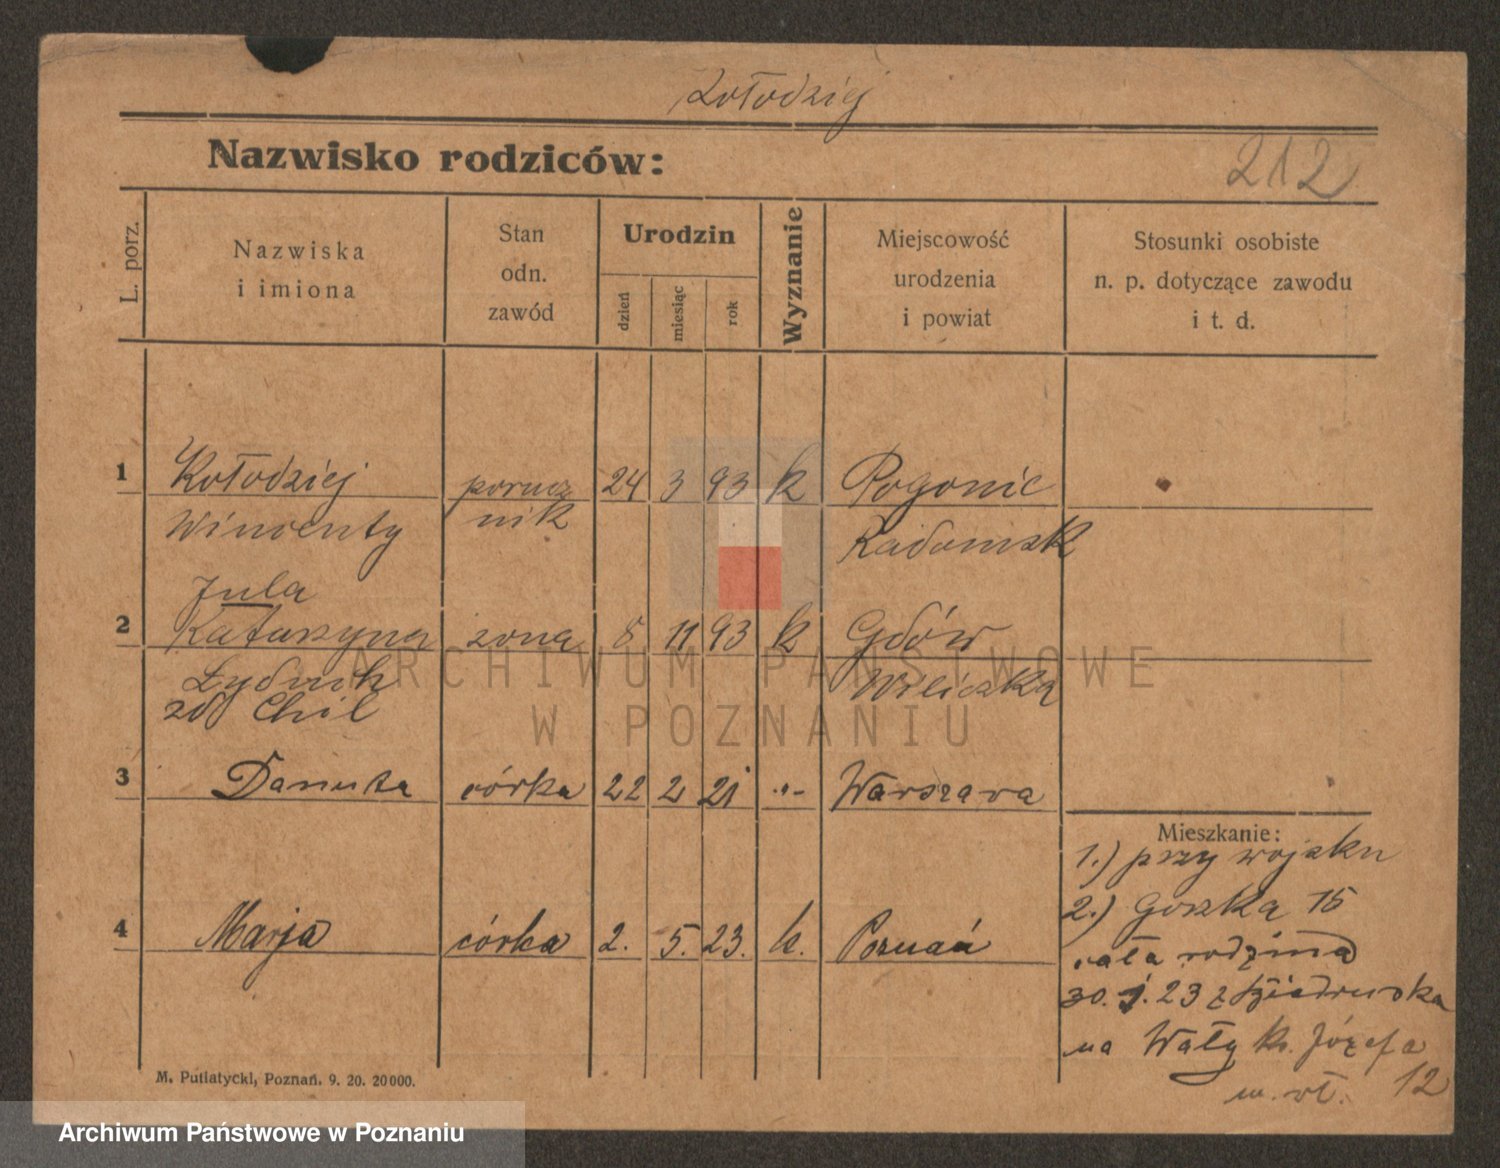 Kołodziej
Nazwisko rodziców:
212
L. porz.
Nazwiska
i imiona
Stan
odn.
zawód
Urodzin
dzień
miesiąc
rok
Wyznanie
Miejscowość
urodzenia
i powiat
Stosunki osobiste
n. p. dotyczące zawodu
i t. d.
1 Kołodziej porucz 24 3 93 k
Wincenty nik Radomsk
Jula
2 Katarzyna żona 8 11 93 k Gdów
Wieliczka
zd
3 Danuta córka 22 2 21 -"- Warszawa
Mieszkanie:
1.) przy wojsku
2.) 15
4 Marja córka 2. 5. 23. k. Poznań
cała rodzina
30. 23 z
na Wały ks. Józefa
12
M. Putiatycki, Poznań. 9. 20. 20000.
ARCHIWUM PAŃSTWOWE
W POZNANIU
Archiwum Państwowe w Poznaniu